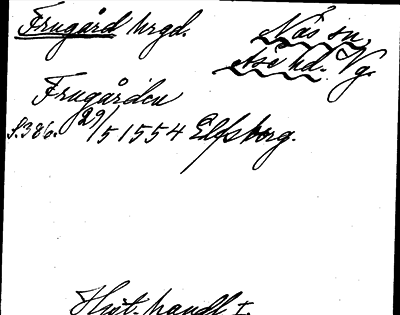 Frugård hrgd.
Näs sn,
Åse hd. Vg.
Frugården
S. 386. 29/5 1554 Elfsborg.
Hist. handl I.